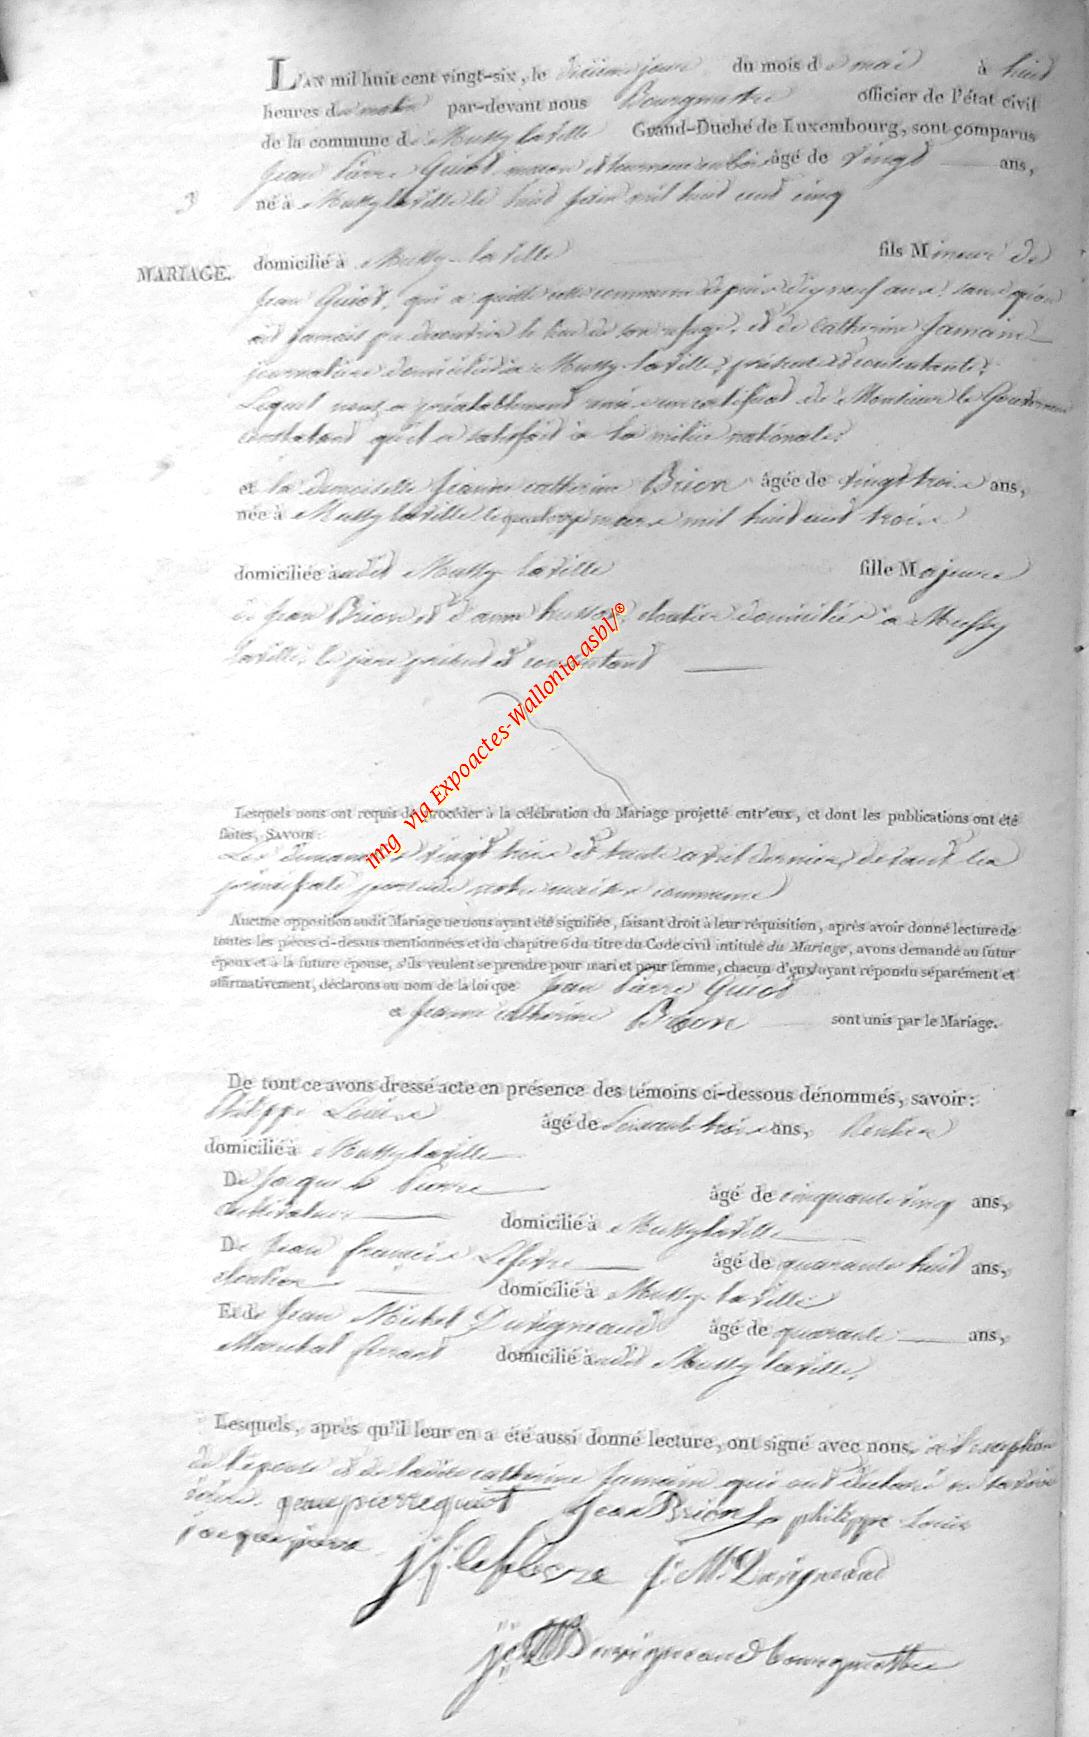 L'AN mil huit cent vingt-six, le dixieme jour du mois de mai à huit
heures du matin par-devant nous Bourgmestre officier de l'état civil
de la commune de Mussy laville Grand-Duché de Luxembourg, sont comparus
Jean Pierre Guiot, macon et tourneur en bois âgé de vingt ans,
3
né à Mussy laville le huit juin mil huit cent cinq
MARIAGE.
domicilié à Mussy-laville fils Mineur de
Jean Guiot, qui a quitté cette commune depuis dix neuf ans, sans qu'on
ait jamais pu decouvrir le lieu de son refuge, et de Catherine Jamain
journaliere domiciliée à Mussy-laville, présente et consentante,
Lequel nous a préalablement remis un certificat de Monsieur le Gouverneur
constatant qu'il a satisfait à la milice nationale.
et la demoiselle Jeanne catherine Brion âgée de vingt trois ans,
née à Mussy laville le quatorze mars mil huit cent trois
domiciliée audit Mussy laville fille Majeure
de Jean Brion et d'anne husson, cloutier domiciliés à Mussy
laville, le pere présent et consentant
img via Expoactes-Wallonia asbl/®
Lesquels nous ont requis de procéder à la célébration du Mariage projetté entr'eux, et dont les publications ont été
faites, SAVOIR:
Les dimanches vingt trois et trente avril dernier devant la
principale porte de notre maison commune
Aucune opposition audit Mariage ne nous ayant été signifiée, faisant droit à leur réquisition, après avoir donné lecture de
toutes les pièces ci-dessus mentionnées et du chapitre 6 du titre du Code civil intitulé du Mariage, avons demandé au futur
époux et à la future épouse, s'ils veulent se prendre pour mari et pour femme, chacun d'eux ayant répondu séparément et
affirmativement, déclarons au nom de la loi que Jean Pierre Guiot
et Jeanne catherine Brion sont unis par le Mariage.
De tout ce avons dressé acte en présence des témoins ci-dessous dénommés, savoir:
Philippe Louis âgé de soixante trois ans, Rentier
domicilié à Mussy laville
De Jaques Pierre âgé de cinquante cinq ans,
cultivateur domicilié à Mussy laville
De Jean francois Lefevre âgé de quarante huit ans,
cloutier domicilié à Mussy laville
Et de Jean Michel Duvigneaud âgé de quarante ans,
Marechal ferrant domicilié audit Mussy laville,
Lesquels, après qu'il leur en a été aussi donné lecture, ont signé avec nous, à l'exception
de l'épouse et de ladite catherine Jamain qui ont declaré ne savoir
écrire. jean pierre guiot Jean Brion philippe Louis
jacque piere j f lefevre J. M. Duvigneaud
Duvigneaud bourguemestre